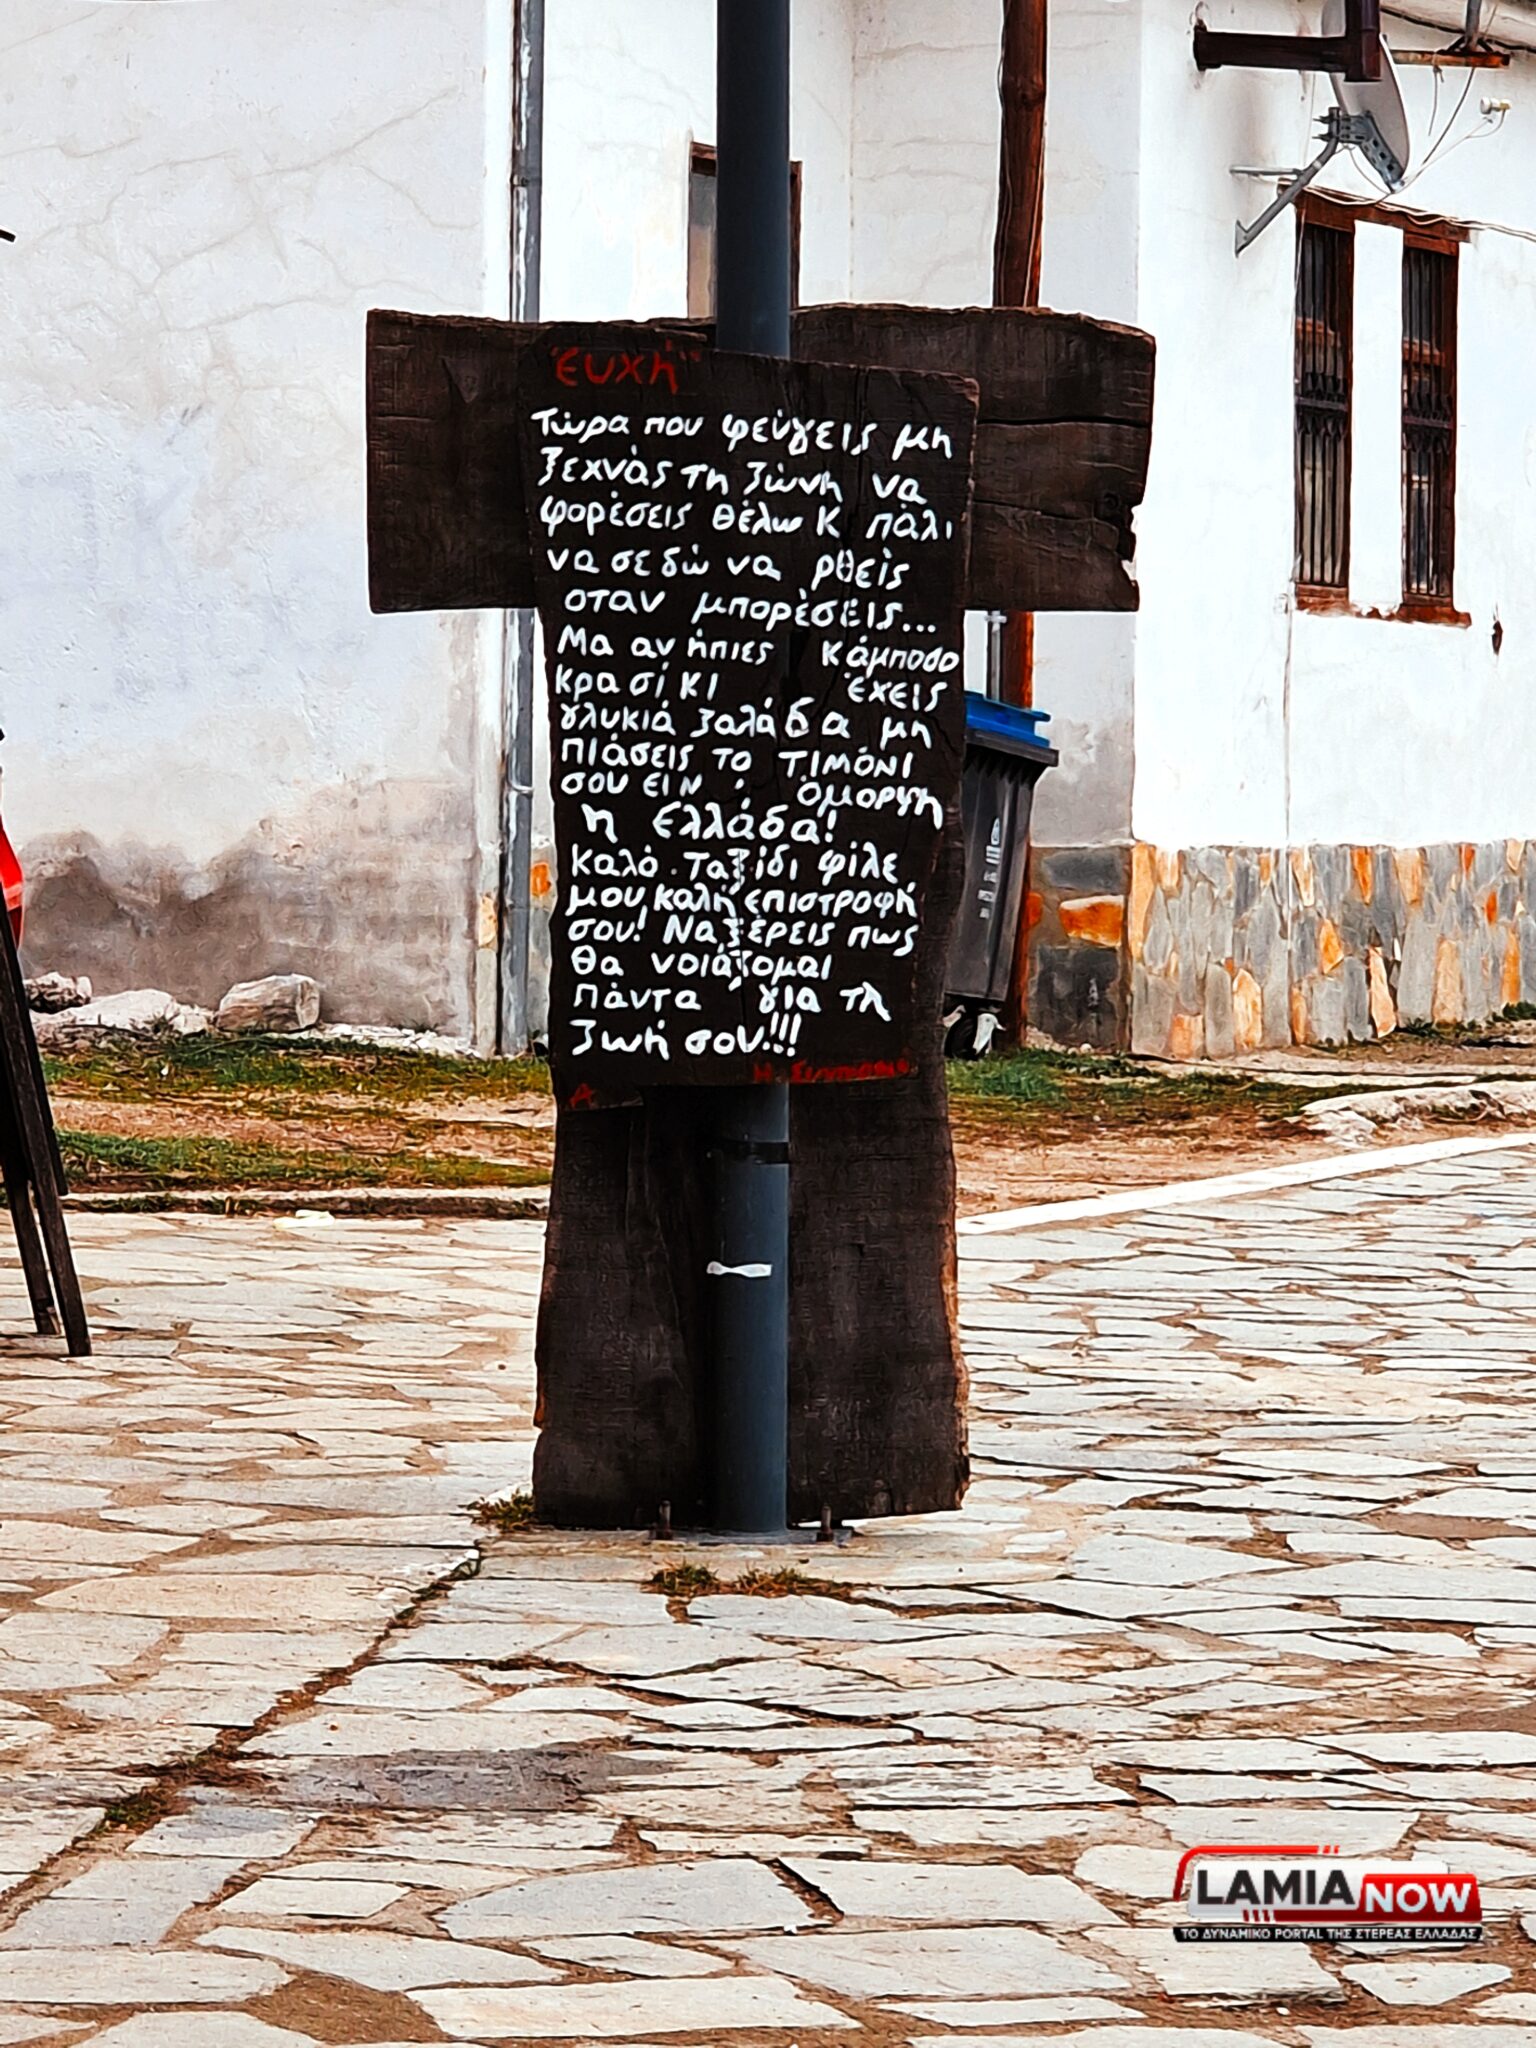 "Ευχή"
Τώρα που φεύγεις μη
ξεχνάς τη ζώνη να
φορέσεις θέλω κ πάλι
να σε δώ να ρθείς
οταν μπορέσεις...
Μα αν ήπιες κάμποσο
κρασί κι έχεις
γλυκιά ζαλάδα μη
πιάσεις το τιμόνι
σου ειν όμορφη
η Ελλάδα!
καλό ταξίδι φίλε
μου καλή επιστροφή
σου! Να ξέρεις πως
θα νοιάζομαι
πάντα για τη
ζωή σου!!!
Α
LAMIA NOW
ΤΟ ΔΥΝΑΜΙΚΟ PORTAL ΤΗΣ ΣΤΕΡΕΑΣ ΕΛΛΑΔΑΣ